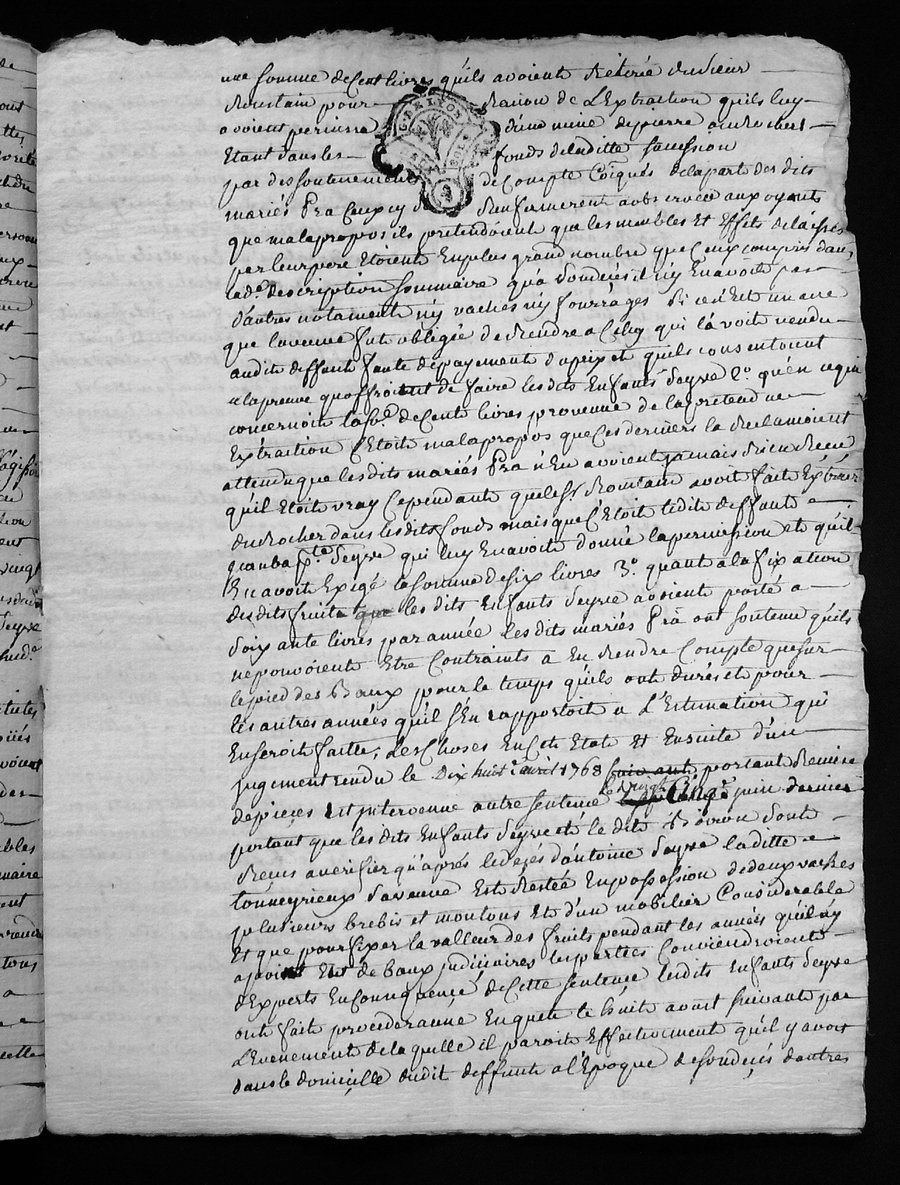 une somme de Cent livres qu'ils avoient Retirée du sieur
Roustain pour Raison de L'Extraction qu'ils luy
avoient permise d'une mine de pierre ou Rochers
Etant dans les fonds de laditte succession
par des soutenements de Compte Coïqués de la part des dits
mariés Pra Ceux cy observer aux oyants
que mal a propos ils pretendoient que les meubles Et Effets delaissés
par leur pere Etoient En plus grand nombre que Ceux compris dans
lad.e description sommaire qu'a son decés il n'y En avoit pas
d'autres notament n'y vaches n'y fourrages Si ce n'Est un ane
que la veuve fut obligée de Rendre a Celuy qui l'avoit vendu
audit deffunt faute de payement du prix et qu'ils consentoient
a la preuve qu'offroient de faire les dits Enfants Seyve 2.o qu'en ce qui
concernoit la s.e de Cent livres provenue de la pretendue
Extraction C'Etoit mal a propos que Ces derniers la Reclamoient
attendu que les dits mariés Pra n'En avoient jamais Rien Reçu
qu'il Etoit vray Cependant que le s.r Roustain avoit fait Extraire
du Rocher dans lesdits fonds mais que C'Etoit ledit deffunt
Jean ba.pte Seyve qui luy En avoit donné la permission et qu'il
En avoit Exigé la somme de six livres 3.o quant a la fixation
des dits fruits que les dits Enfants Seyve avoient porté a
soixante livres par année Les dits mariés Pra ont soutenu qu'ils
ne pouvoient Etre Contraints a En Rendre Compte que sur
le pied des Baux pour le temps qu'ils ont durés et pour
les autres années qu'il s'En rapportoit a L'Estimation qui
En seroit faitte, Les Choses En Cet Etat Et Ensuite d'un
jugement rendu le Dix huit avril 1768 suivant portant Remise
de pieces Est intervenue autre sentence le vingt Cinq.e juin dernier
portant que les dits Enfants Seyve et le dit sont
Reçus a verifier qu'aprés le decés d'antoine Seyve laditte
sa veuve Est Restée En possession de deux vaches
plusieurs brebis et moutons Et d'un mobilier Considerable
Et que pour fixer la valleur des fruits pendant les années qu'il n'y
a point Eut de baux judiciaires les parties Conviendroient
d'Experts En Consequence de Cette sentence lesdits Enfants Seyve
ont fait proceder a une Enquete le huit aoust suivant par
L'Evenement de laquelle il paroit Effectivement qu'il y avoit
dans le domicille dudit deffunt a l'Epoque de son decés d'autres